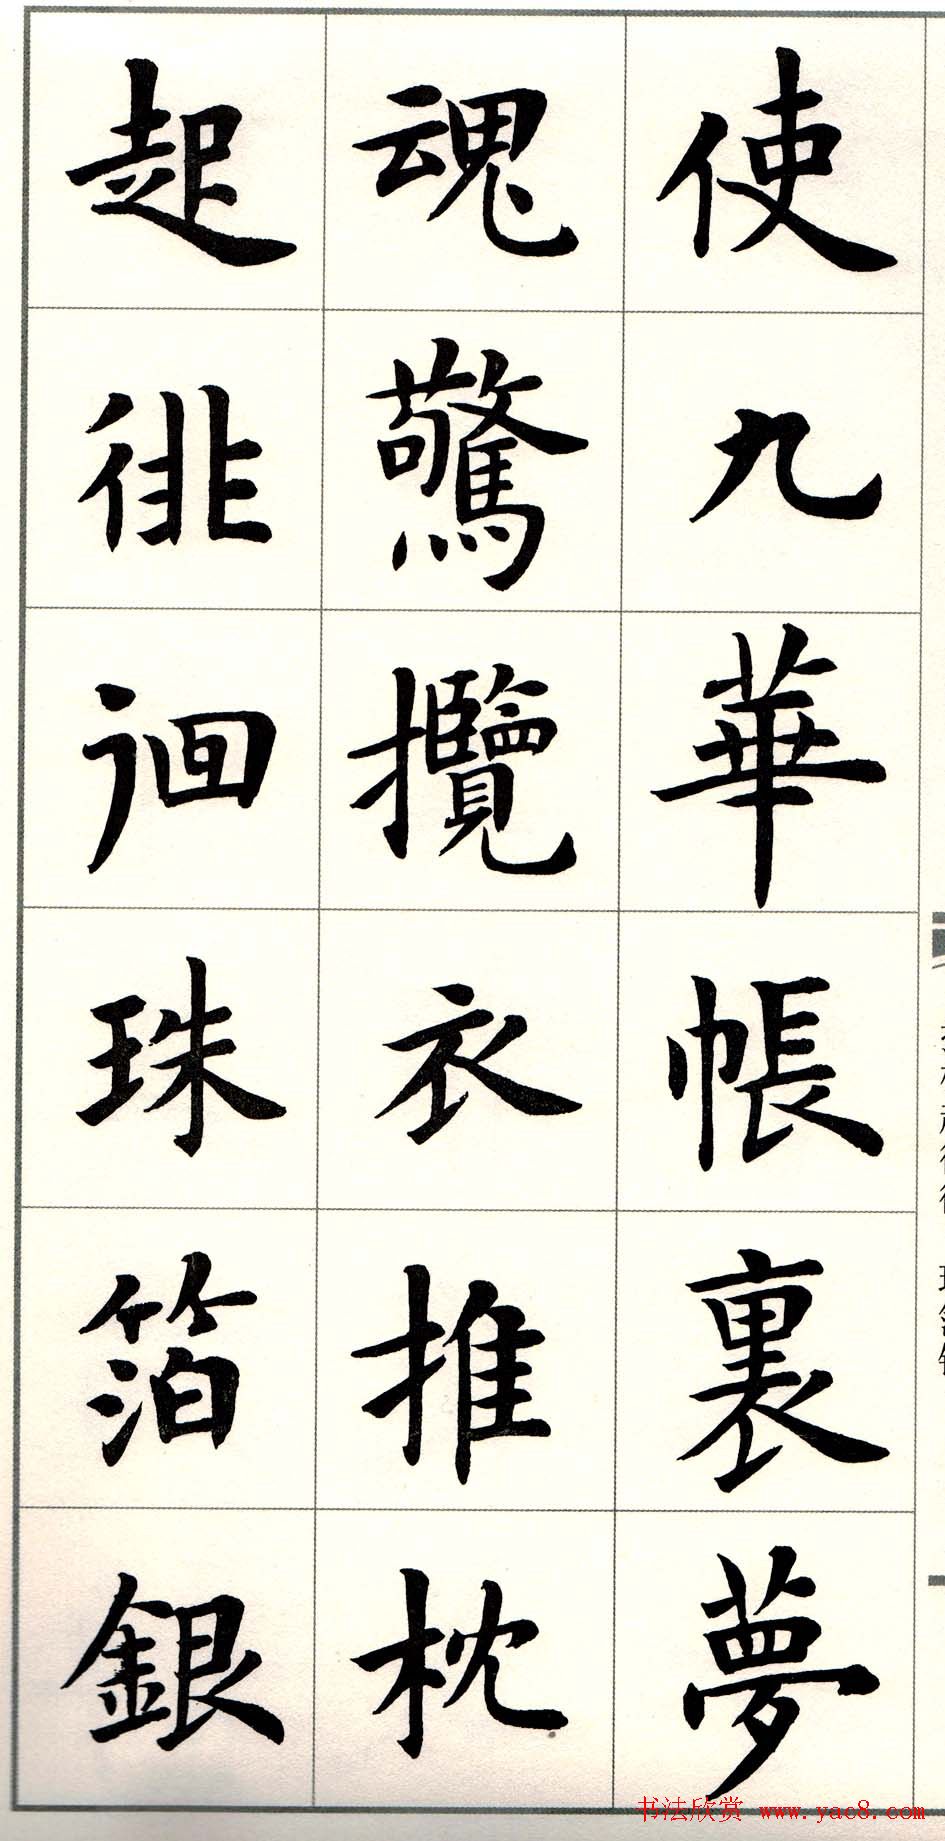 使九華帳裏夢
魂驚攬衣推枕
起徘徊珠箔銀
书法欣赏 www.yac8.com